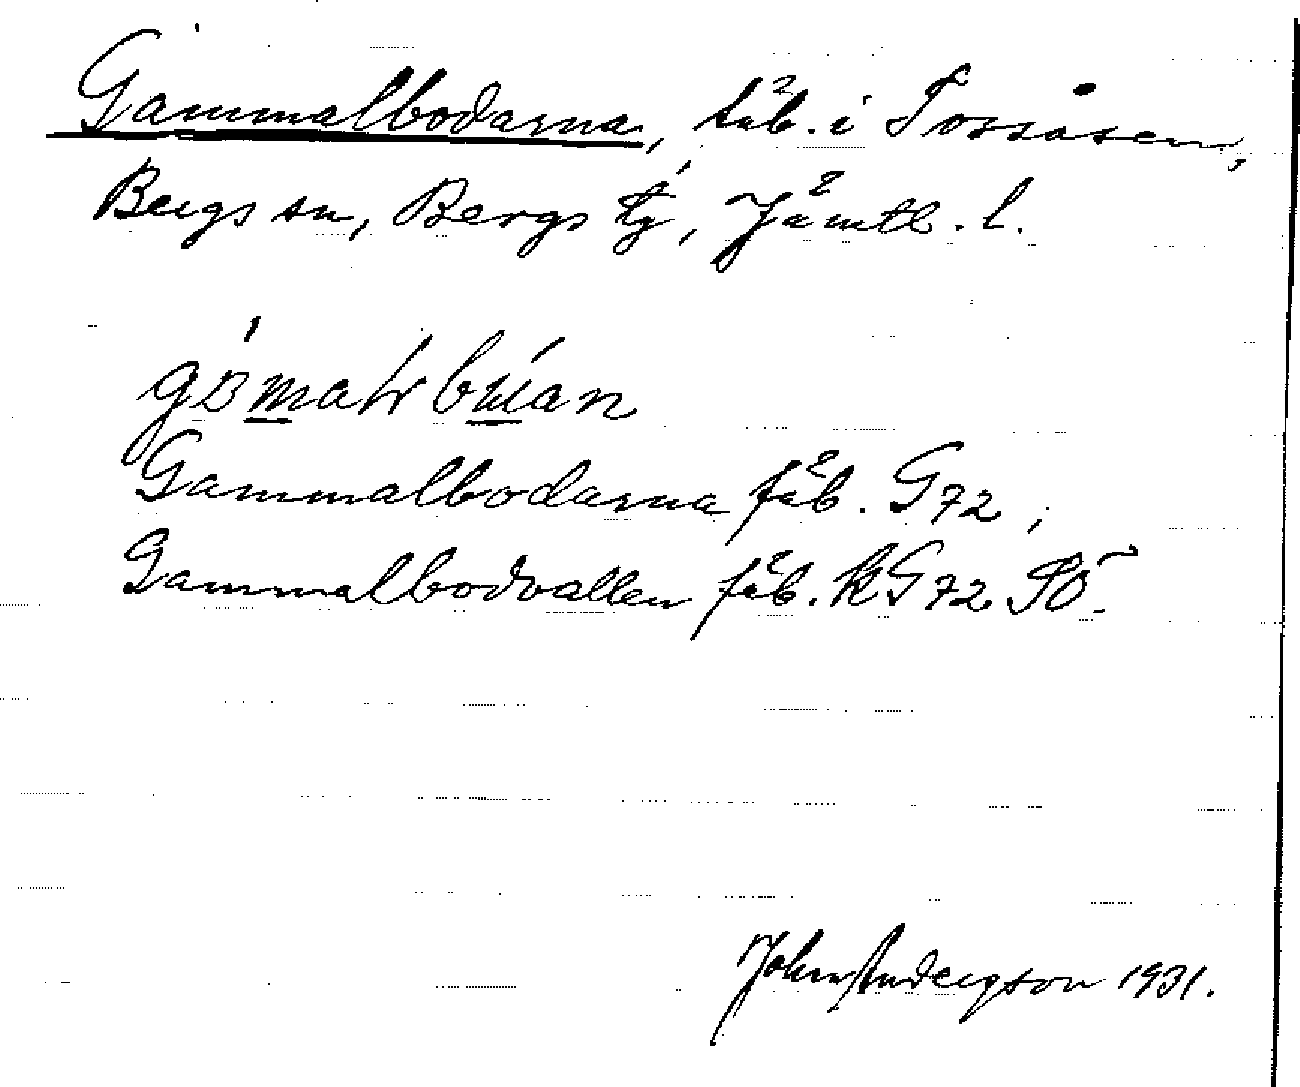 Gammalbodarna, fäb. i Tossåsen,
Bergs sn, Bergs tg, Jämtl. l.
Gammalbodarna fäb. G72,
Gammalbodvallen fäb. KG72
John Andersson 1931.